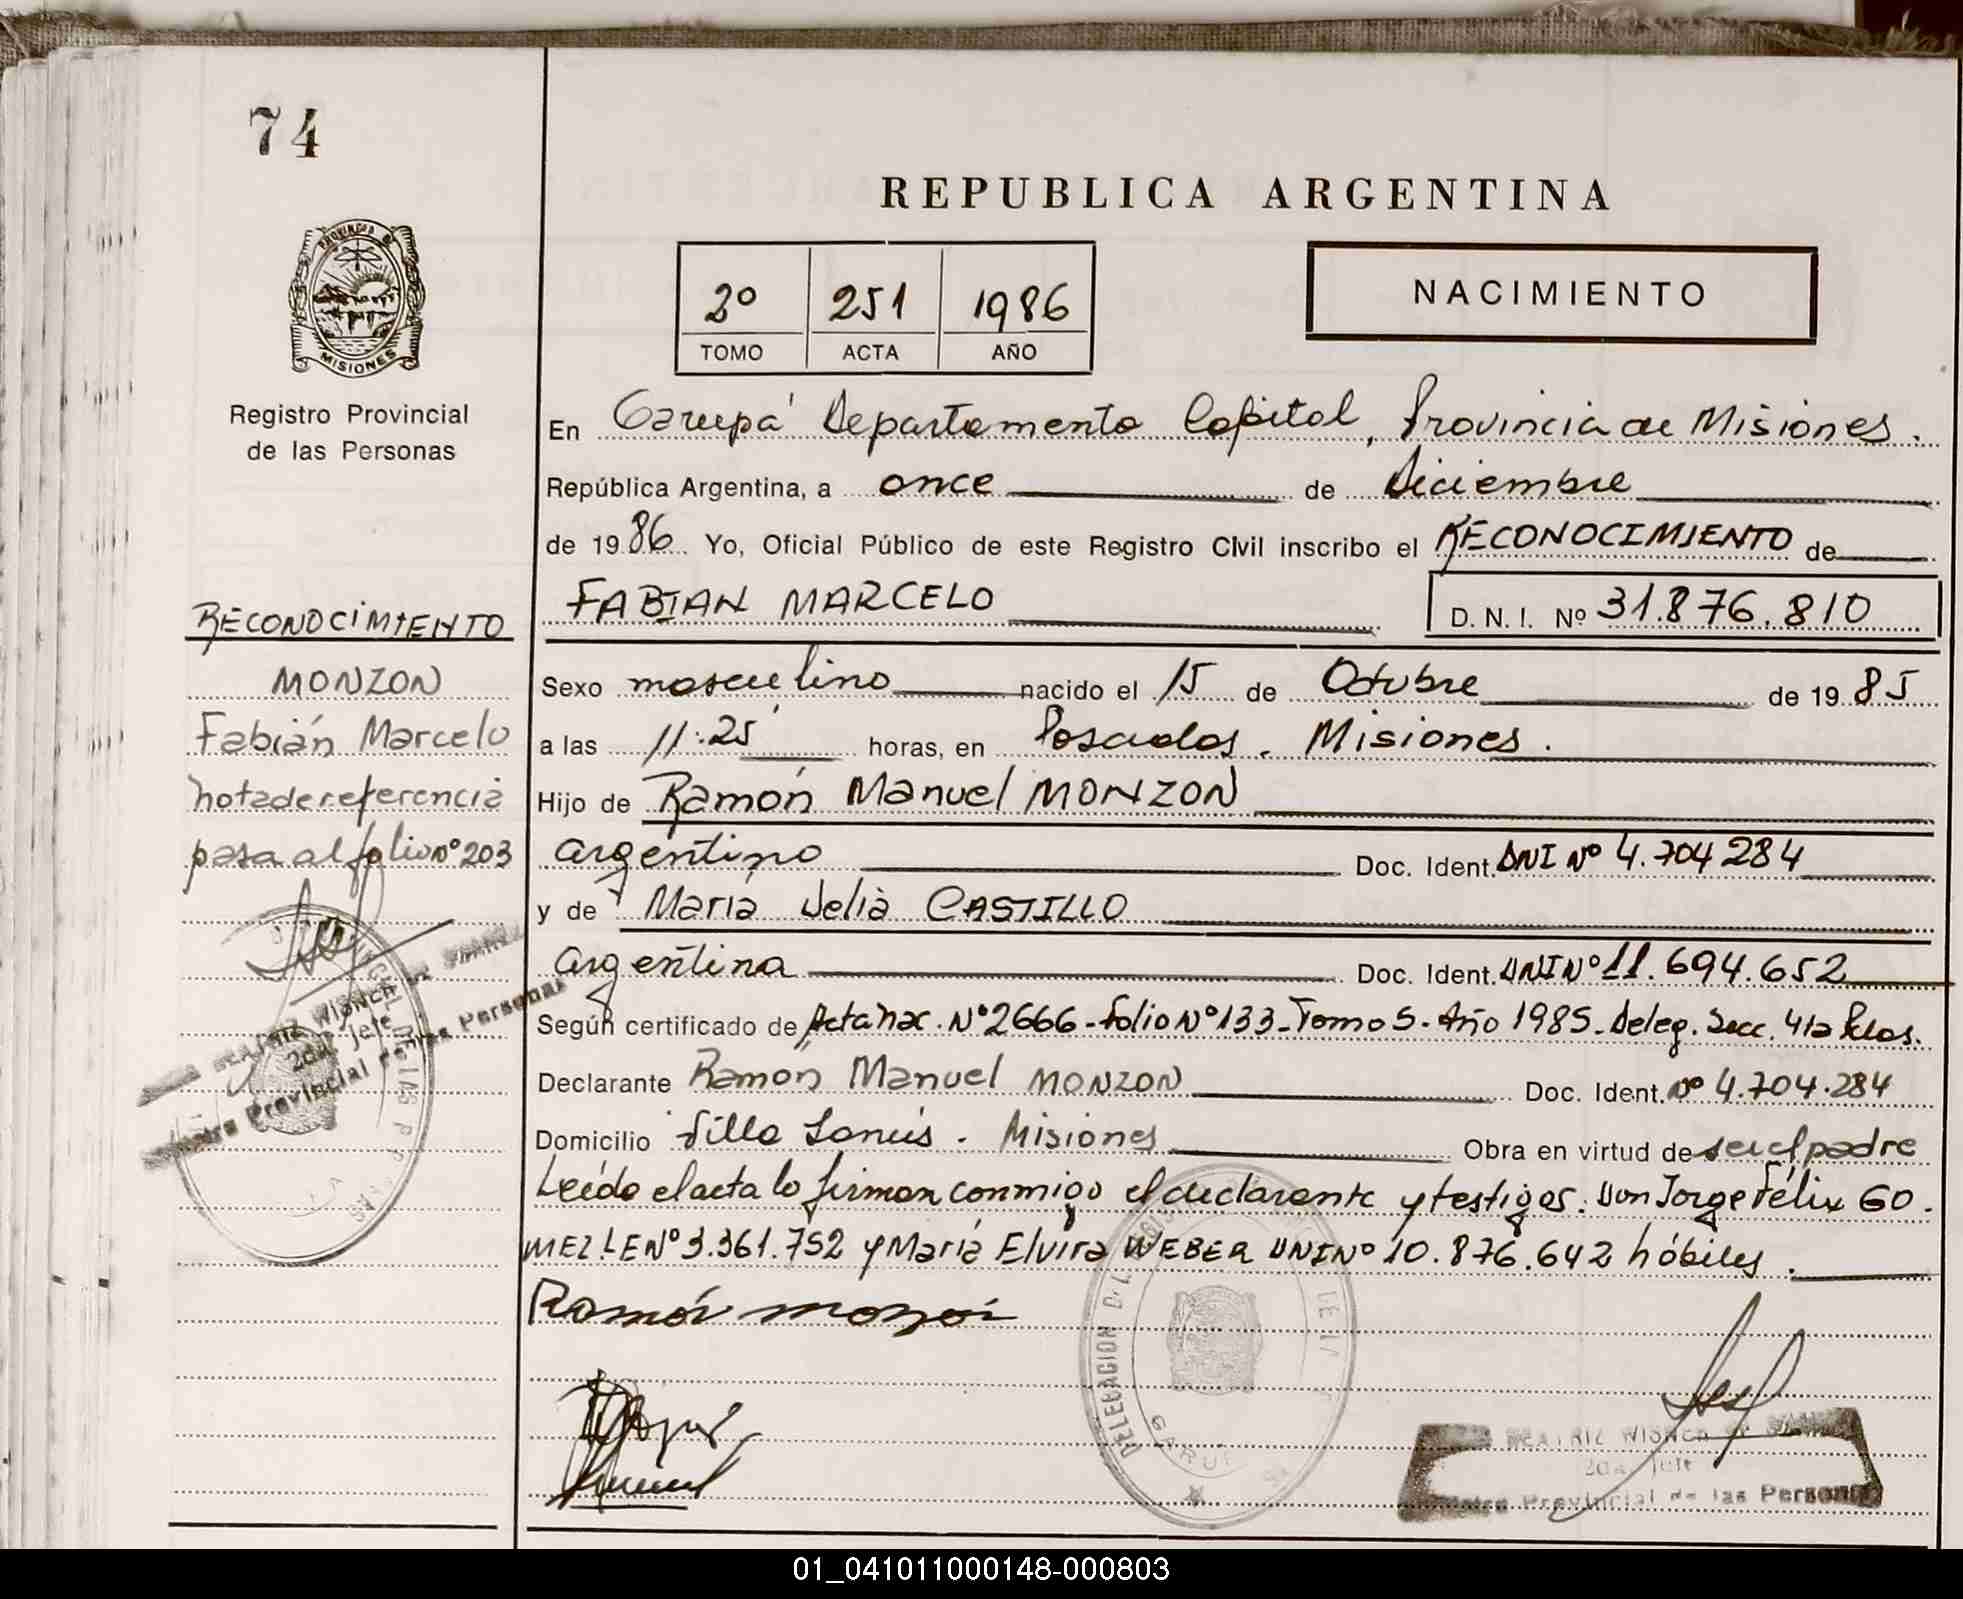 74
REPUBLICA ARGENTINA
PROVINCIA DE
MISIONES
Registro Provincial
de las Personas
2º 251 1986
TOMO ACTA AÑO
NACIMIENTO
En Garupá Departamento Capital, Provincia de Misiones.
República Argentina, a once de Diciembre
de 1986 Yo, Oficial Público de este Registro Civil inscribo el RECONOCIMIENTO de
FABIAN MARCELO D. N. I. Nº 31.876.810
Sexo masculino nacido el 15 de Octubre de 1985
a las 11:25' horas, en Posadas. Misiones.
Hijo de Ramón Manuel MONZON
argentino Doc. Ident. DNI Nº 4.704284
y de María Delia CASTILLO
argentina Doc. Ident. DNI Nº 11.694.652
Según certificado de Acta Nac. Nº 2666-folio Nº 133-Tomo 5-Año 1985-Deleg. Secc. 41a Pdas.
Declarante Ramón Manuel MONZON Doc. Ident. Nº 4.704.284
Domicilio Villa Lanús. Misiones Obra en virtud de ser el padre
Leído el acta lo firman conmigo el declarante y testigos: Don Jorge Félix GO.
MEZ LE Nº 3.361.752 y María Elvira WEBER DNI Nº 10.876.642 hábiles.
Ramón monzón
RECONOCIMIENTO
MONZON
Fabián Marcelo
nota de referencia
pasa al folio nº 203
BEATRIZ WIONCZ DE
2da. Jefe
Provincial de las Personas
DELEGACION D. L.
GARUPA
BEATRIZ WIONCZ DE
2da. Jefe
Registro Provincial de las Personas
01_041011000148-000803